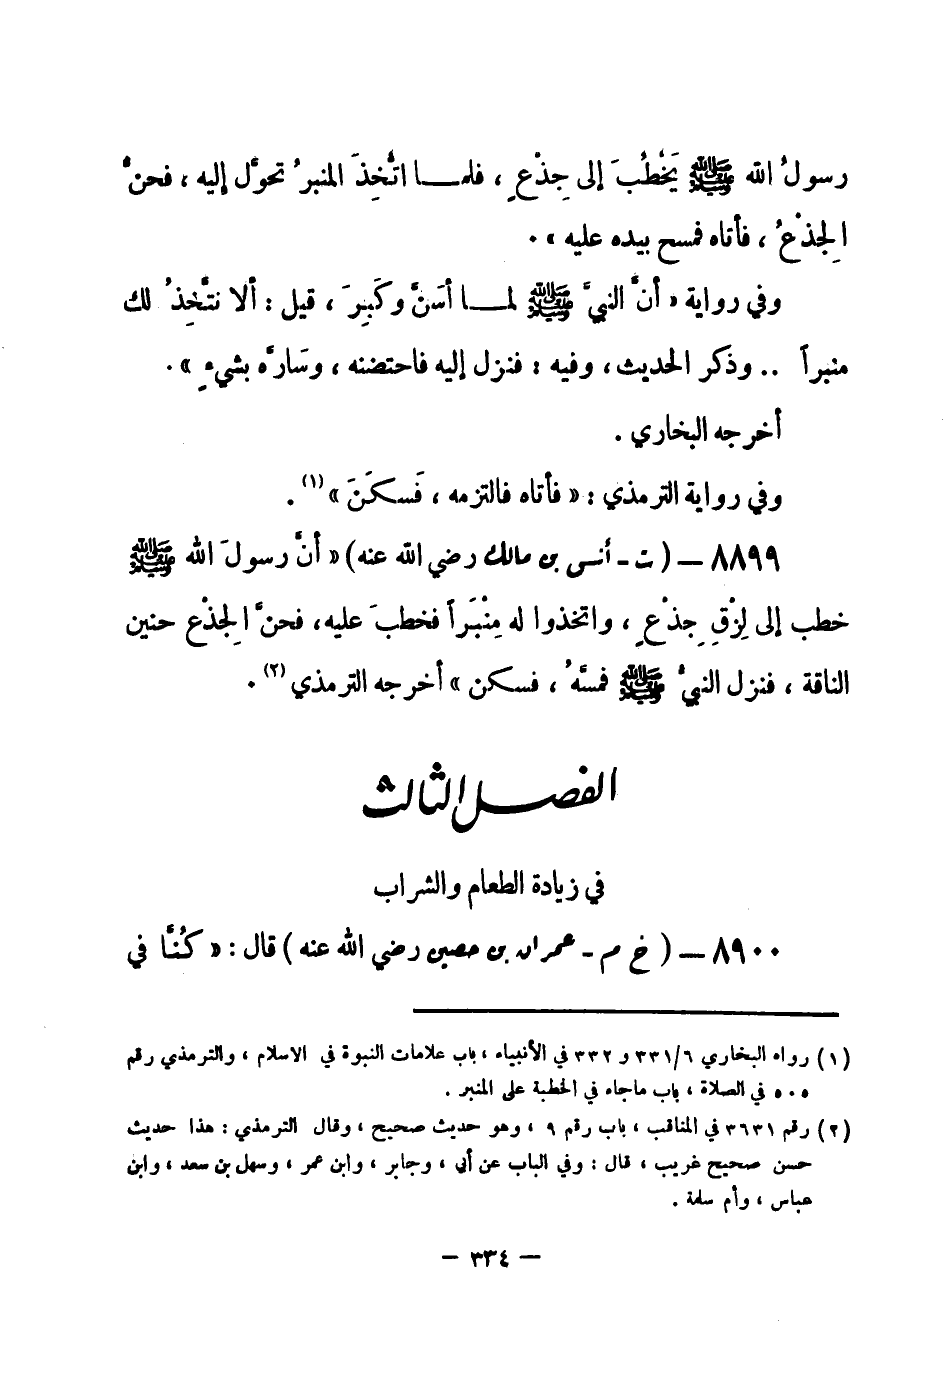 رسولُ الله ﷺ يَخْطُبَ إلى جِذْعٍ ، فلمــا اتُّخِذَ المنبرُ تحوَّل إليه ، فحنَّ
الجِذْعُ ، فأتاه فمسح بيده عليه » .
وفي رواية « أنَّ النبيَّ ﷺ لمــا أسَنَّ وكَبِرَ ، قيل : ألا نتَّخِذُ لك
منبراً .. وذكر الحديث ، وفيه : فنزل إليه فاحتضنه ، وسَارَّه بشيءٍ » .
أخرجه البخاري .
وفي رواية الترمذي : « فأتاه فالتزمه ، فَسكَنَ »(١) .
٨٨٩٩ – ( ت - أنس بن مالك رضي الله عنه ) « أنَّ رسولَ الله ﷺ
خطب إلى لِزْقِ جِذْعٍ ، واتخذوا له مِنْبَراً فخطبَ عليه ، فحنَّ الجِذْع حنين
الناقة ، فنزل النبيُّ ﷺ فمسَّهُ ، فسكن » أخرجه الترمذي (٢) .
الفصل الثالث
في زيادة الطعام والشراب
٨٩٠٠ – ( خ م - عمران بن حصين رضي الله عنه ) قال : « كُنَّا في
(١) رواه البخاري ٣٣١/٦ و ٣٣٢ في الأنبياء ، باب علامات النبوة في الاسلام ، والترمذي رقم
٥٠٥ في الصلاة ، باب ماجاء في الخطبة على المنبر .
(٢) رقم ٣٦٣١ في المناقب ، باب رقم ٩ ، وهو حديث صحيح ، وقال الترمذي : هذا حديث
حسن صحيح غريب ، قال : وفي الباب عن أبي ، وجابر ، وابن عمر ، وسهل بن سعد ، وابن
عباس ، وأم سلمة .
– ٣٣٤ –